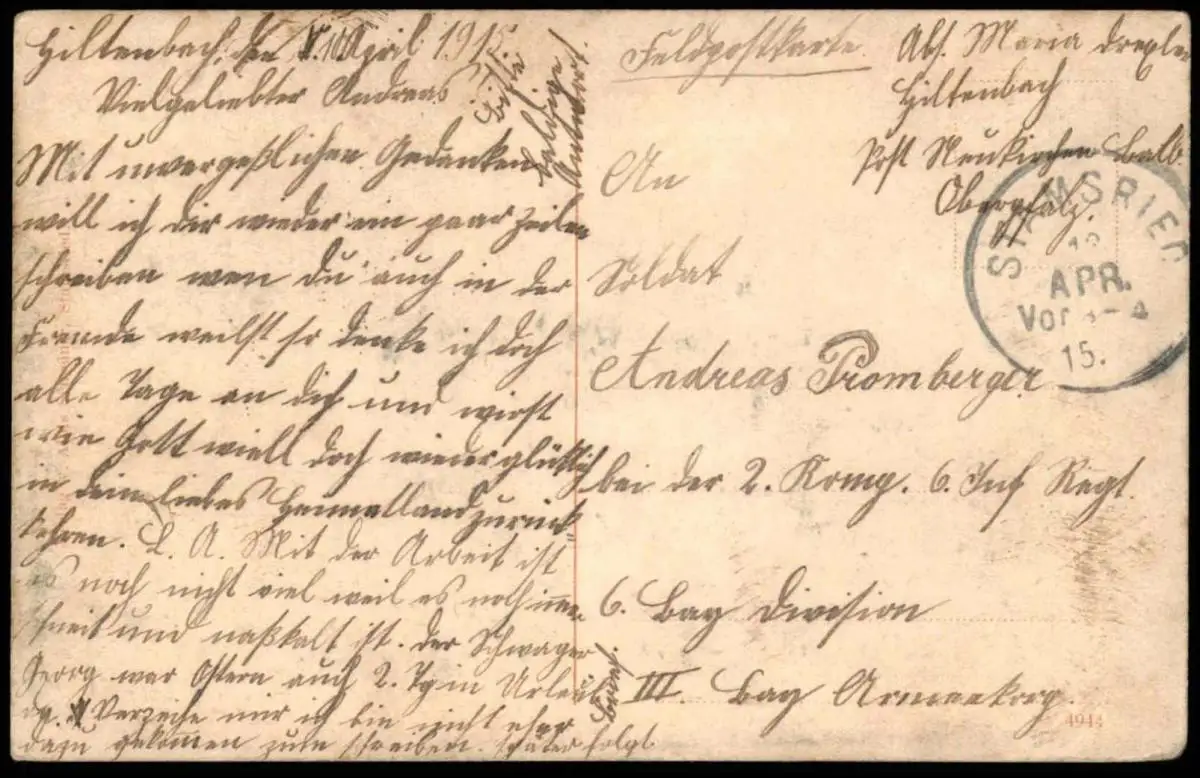 Hiltenbach, den 10 April 1915
Vielgeliebter Andreas
Mit unvergeßlichen Gedanken
will ich dir wieder ein paar Zeilen
schreiben wen du auch in der
Fremde weilst so denke ich doch
alle Tage an dich und wirst
wie Gott will doch wieder glücklich
in dein liebes Heimatland zurück
kehren. L. A. Mit der Arbeit ist
es noch nicht viel weil es noch immer
schneit und naßkalt ist. der Schwager
Georg war Ostern auch 2. Tg in Urlaub
Verzeihe mir ich bin nicht eher
dazu gekomen zum schreiben. später folgt
Bitte
baldige
Antwort.
Feldpostkarte.
Abs. Maria Drexler
Hiltenbach
Post Neukirchen Balb.
Oberpfalz.
An
Soldat
Andreas Promberger
bei der 2. Komp. 6. Inf Regt.
6. Bay Division
III. Bay Armeekorp.
STAMSRIED
APR.
Vor
15.
4944